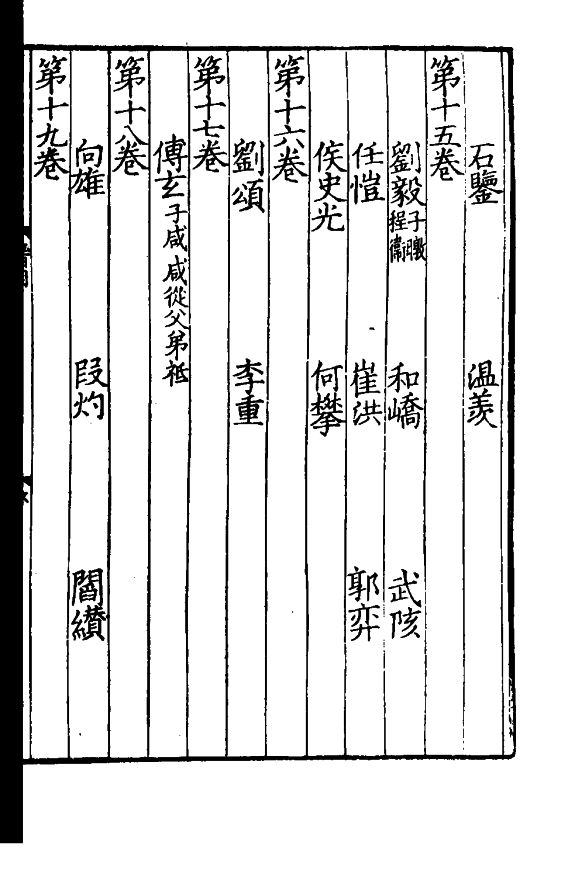 石鑒 温羨
第十五卷
劉毅子暾程衛 和嶠 武陔
任愷 崔洪 郭弈
侯史光 何攀
第十六卷
劉頌 李重
第十七卷
傅玄子咸咸從父弟祗
第十八卷
向雄 段灼 閻纘
第十九卷